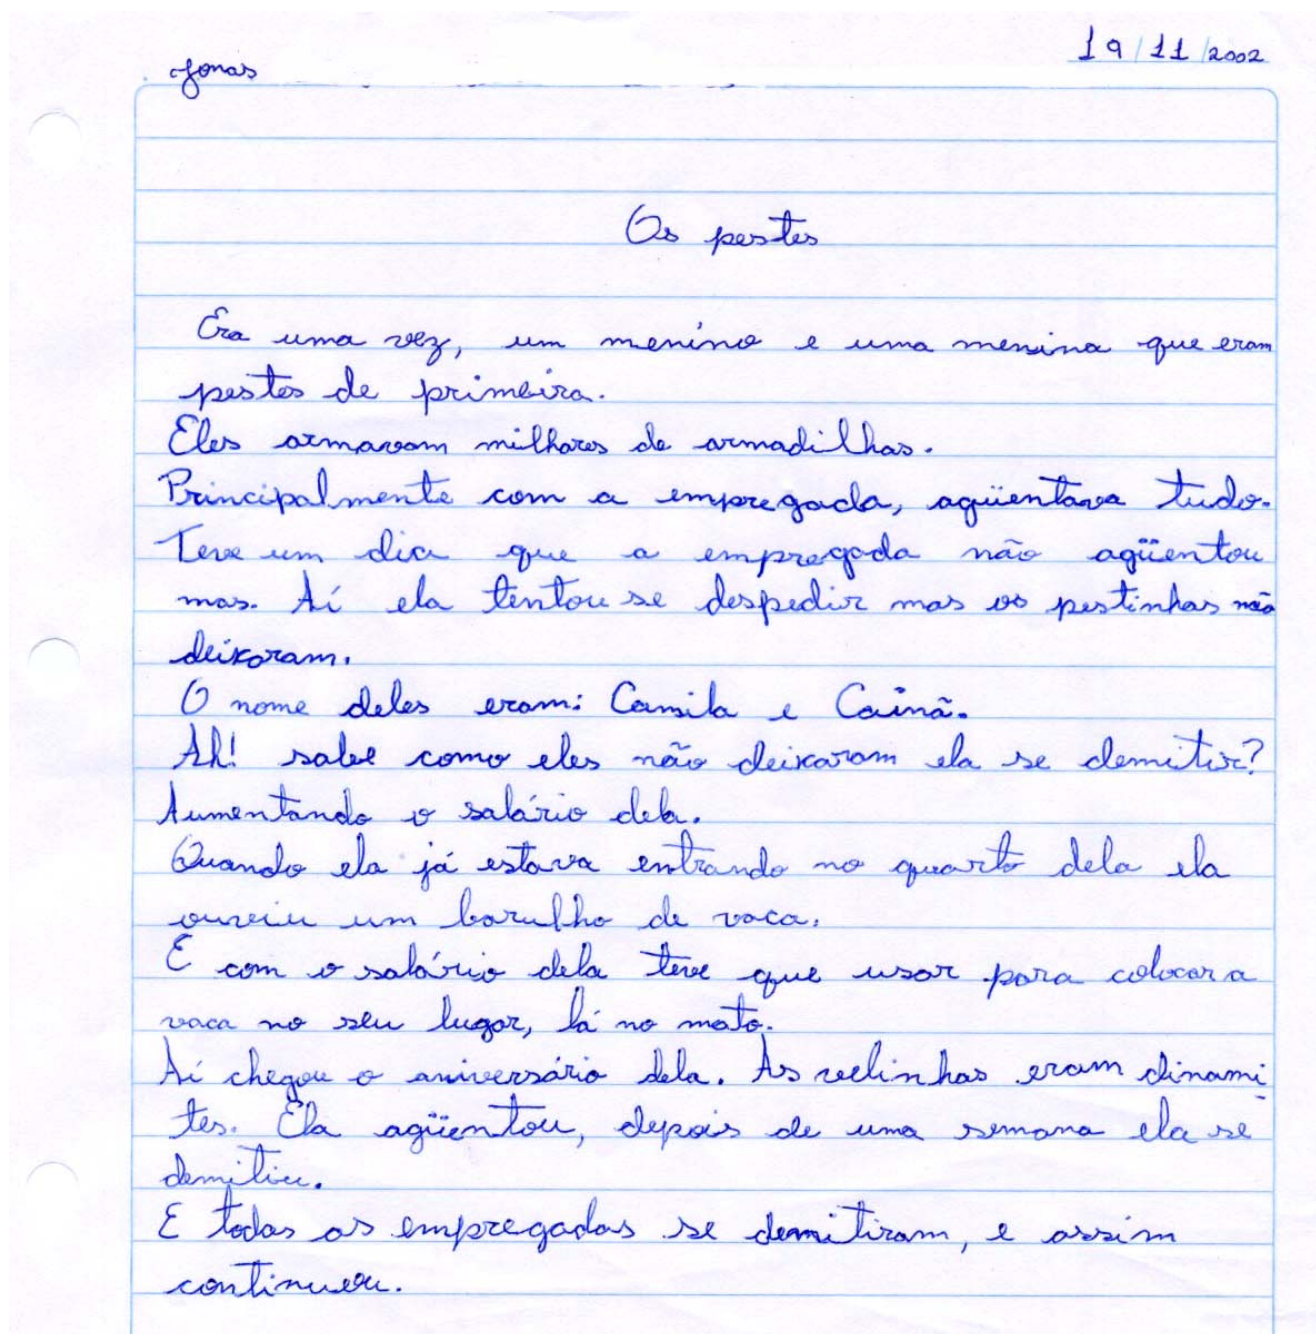 19/11/2002
Jonas
Os pestes
Era uma vez, um menino e uma menina que eram
pestes de primeira.
Eles armavam milhares de armadilhas.
Principalmente com a empregada, agüentava tudo.
Teve um dia que a empregada não agüentou
mas. Aí ela tentou se despedir mas os pestinhas não
deixaram.
O nome deles eram: Camila e Cainã.
Ah! sabe como eles não deixaram ela se demitir?
Aumentando o salário dela.
Quando ela já estava entrando no quarto dela ela
ouviu um barulho de vaca.
E com o salário dela teve que usar para colocar a
vaca no seu lugar, lá no mato.
Aí chegou o aniversário dela. As velinhas eram dinami
tes. Ela agüentou, depois de uma semana ela se
demitiu.
E todas as empregadas se demitiram, e assim
continuou.